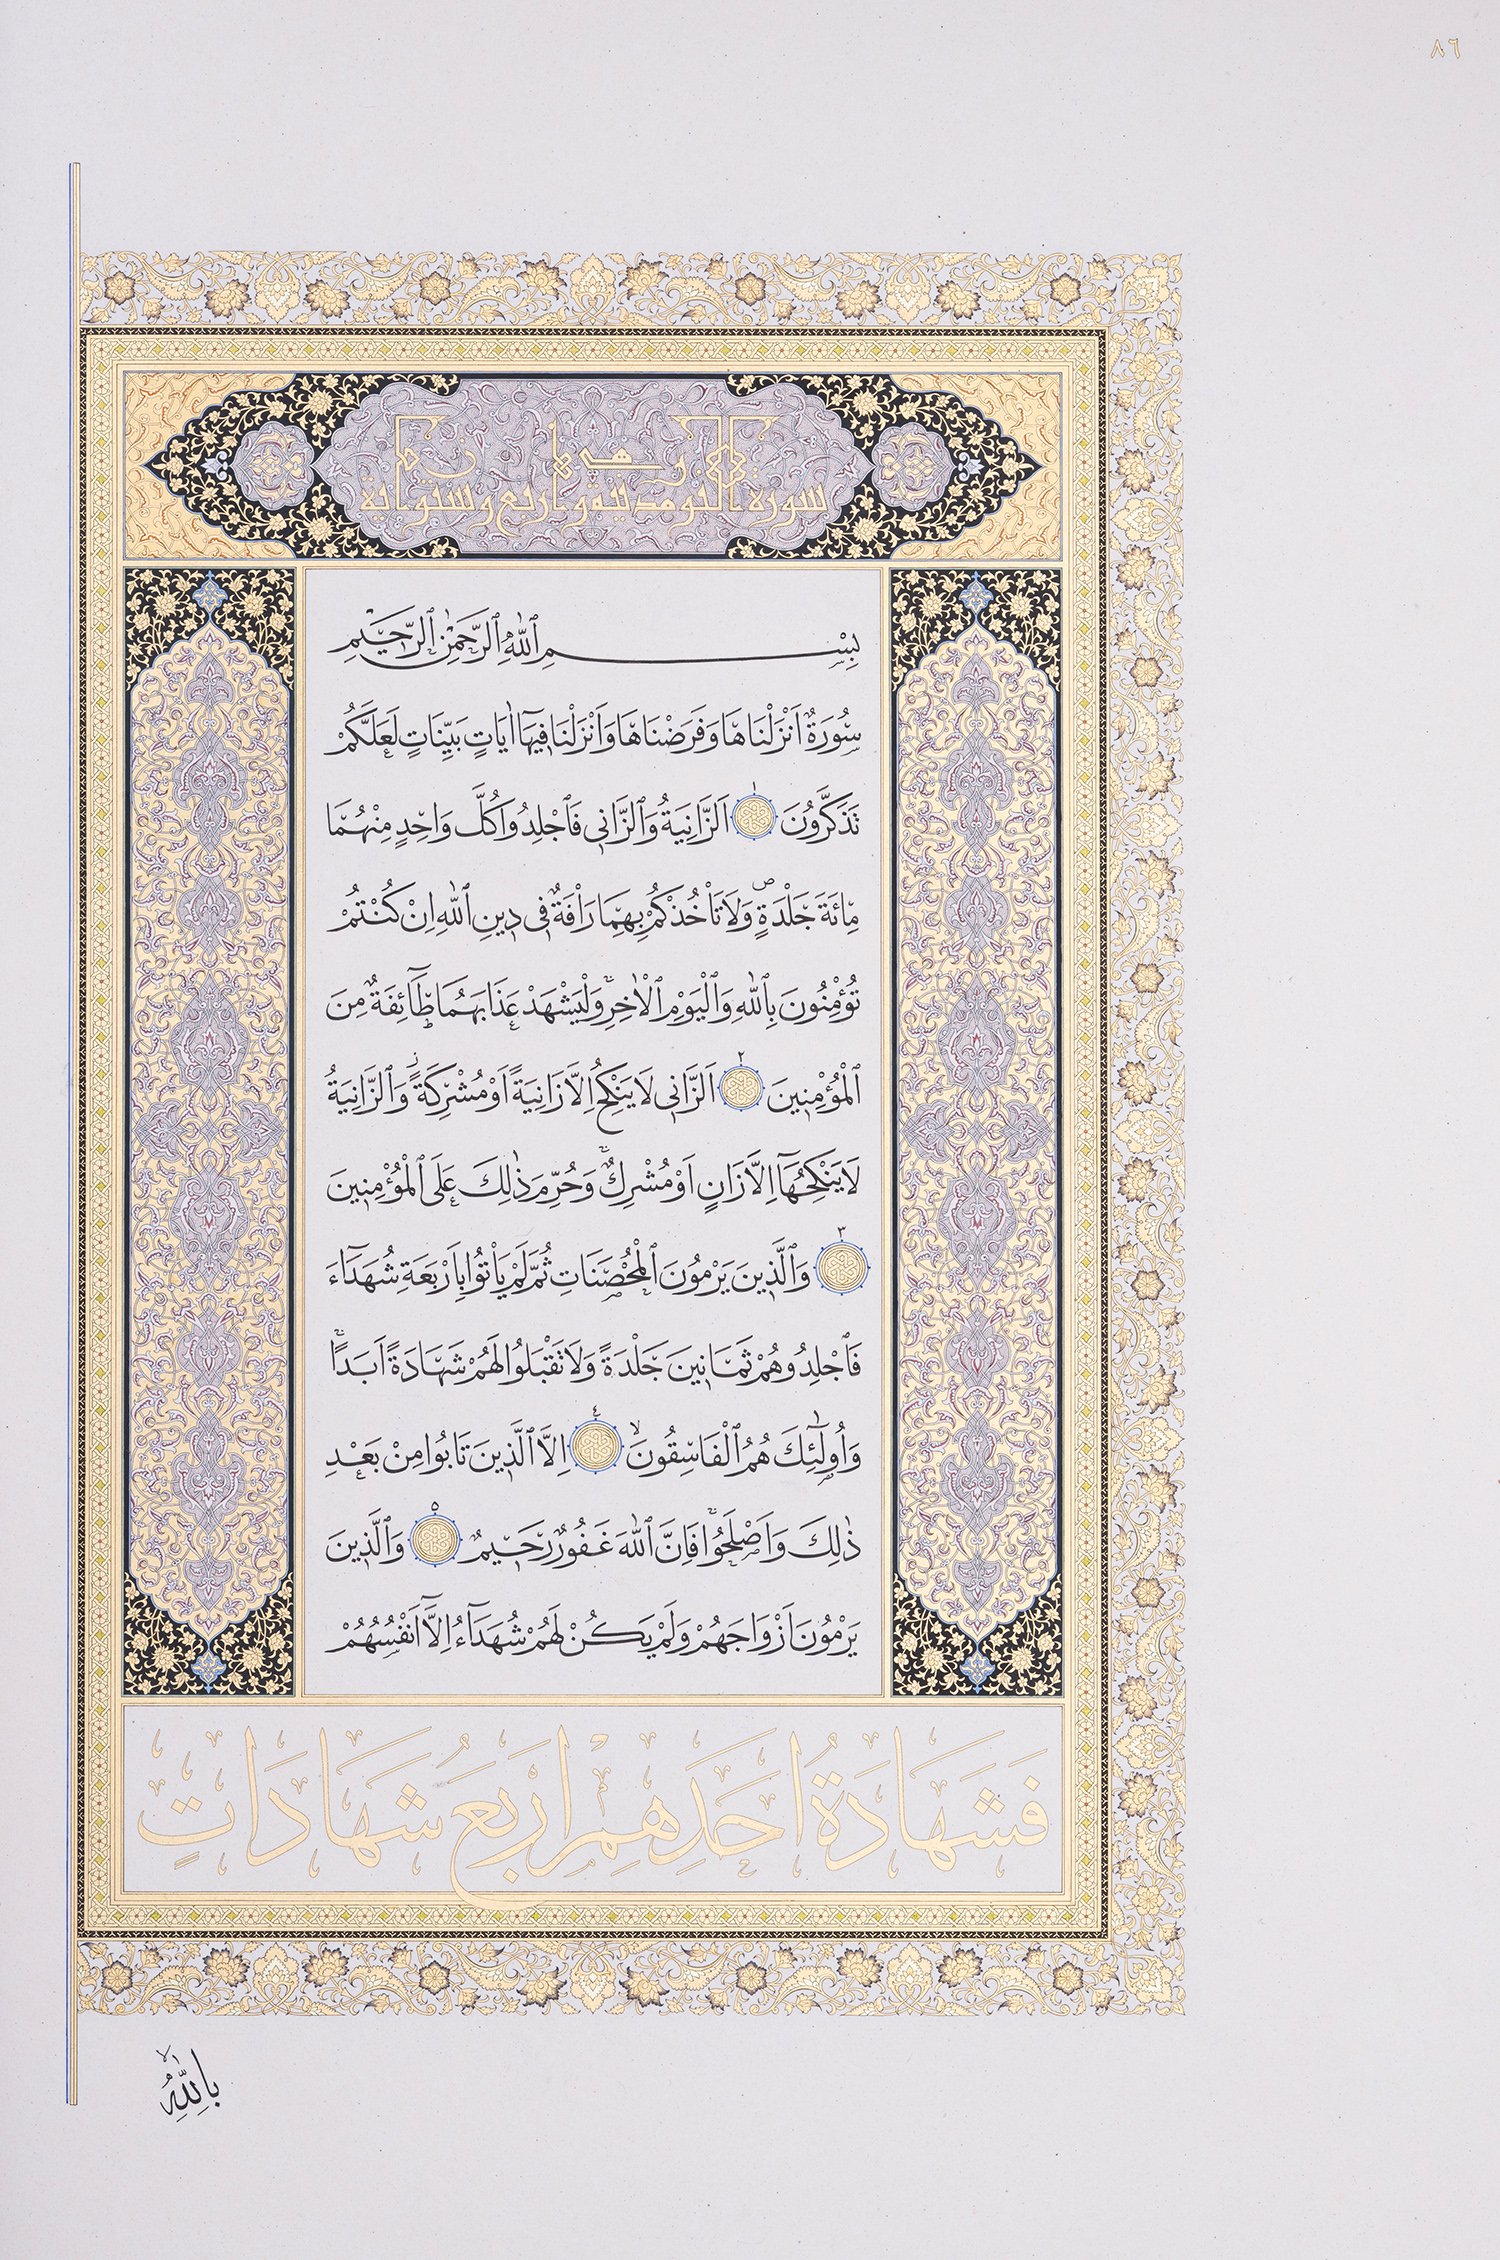 ٨٦
سورة النور مدنية وهي اربع وستون اية
بِسْمِ ٱللّٰهِ ٱلرَّحْمٰنِ ٱلرَّحٖيمِ
سُورَةٌ اَنْزَلْنَاهَا وَفَرَضْنَاهَا وَاَنْزَلْنَا فٖيهَٓا اٰيَاتٍ بَيِّنَاتٍ لَعَلَّكُمْ
تَذَكَّرُونَ ١ اَلزَّانِيَةُ وَٱلزَّانٖى فَٱجْلِدُوا كُلَّ وَاحِدٍ مِنْهُمَا
مِائَةَ جَلْدَةٍۖ وَلَا تَأْخُذْكُمْ بِهِمَا رَأْفَةٌ فٖى دٖينِ ٱللّٰهِ اِنْ كُنْتُمْ
تُؤْمِنُونَ بِٱللّٰهِ وَٱلْيَوْمِ ٱلْاٰخِرِۚ وَلْيَشْهَدْ عَذَابَهُمَا طَٓائِفَةٌ مِنَ
ٱلْمُؤْمِنٖينَ ٢ اَلزَّانٖى لَا يَنْكِحُ اِلَّا زَانِيَةً اَوْ مُشْرِكَةًؗ وَٱلزَّانِيَةُ
لَا يَنْكِحُهَٓا اِلَّا زَانٍ اَوْ مُشْرِكٌۚ وَحُرِّمَ ذٰلِكَ عَلَى ٱلْمُؤْمِنٖينَ
٣ وَٱلَّذٖينَ يَرْمُونَ ٱلْمُحْصَنَاتِ ثُمَّ لَمْ يَأْتُوا بِاَرْبَعَةِ شُهَدَٓاءَ
فَٱجْلِدُوهُمْ ثَمَانٖينَ جَلْدَةً وَلَا تَقْبَلُوا لَهُمْ شَهَادَةً اَبَدًاۚ
وَاُو۬لٰٓئِكَ هُمُ ٱلْفَاسِقُونَۙ ٤ اِلَّا ٱلَّذٖينَ تَابُوا مِنْ بَعْدِ
ذٰلِكَ وَاَصْلَحُواۚ فَاِنَّ ٱللّٰهَ غَفُورٌ رَحٖيمٌ ٥ وَٱلَّذٖينَ
يَرْمُونَ اَزْوَاجَهُمْ وَلَمْ يَكُنْ لَهُمْ شُهَدَٓاءُ اِلَّٓا اَنْفُسُهُمْ
فَشَهَادَةُ اَحَدِهِمْ اَرْبَعُ شَهَادَاتٍ
بِاللّٰهِۙ